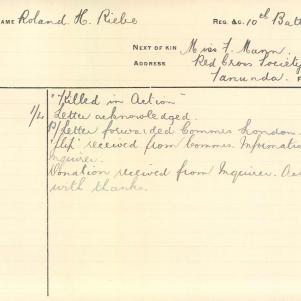 NAME Roland H. Riebe REG. &C. 10th Batt
NEXT OF KIN Miss F. Mann.
ADDRESS Red Cross Society
Tanunda.
"Killed in Action"
Letter acknowledged.
letter forwarded Commrs London.
"slip" received from Commrs. Information
Inquirer.
Donation received from Inquirer. Ack
with thanks.